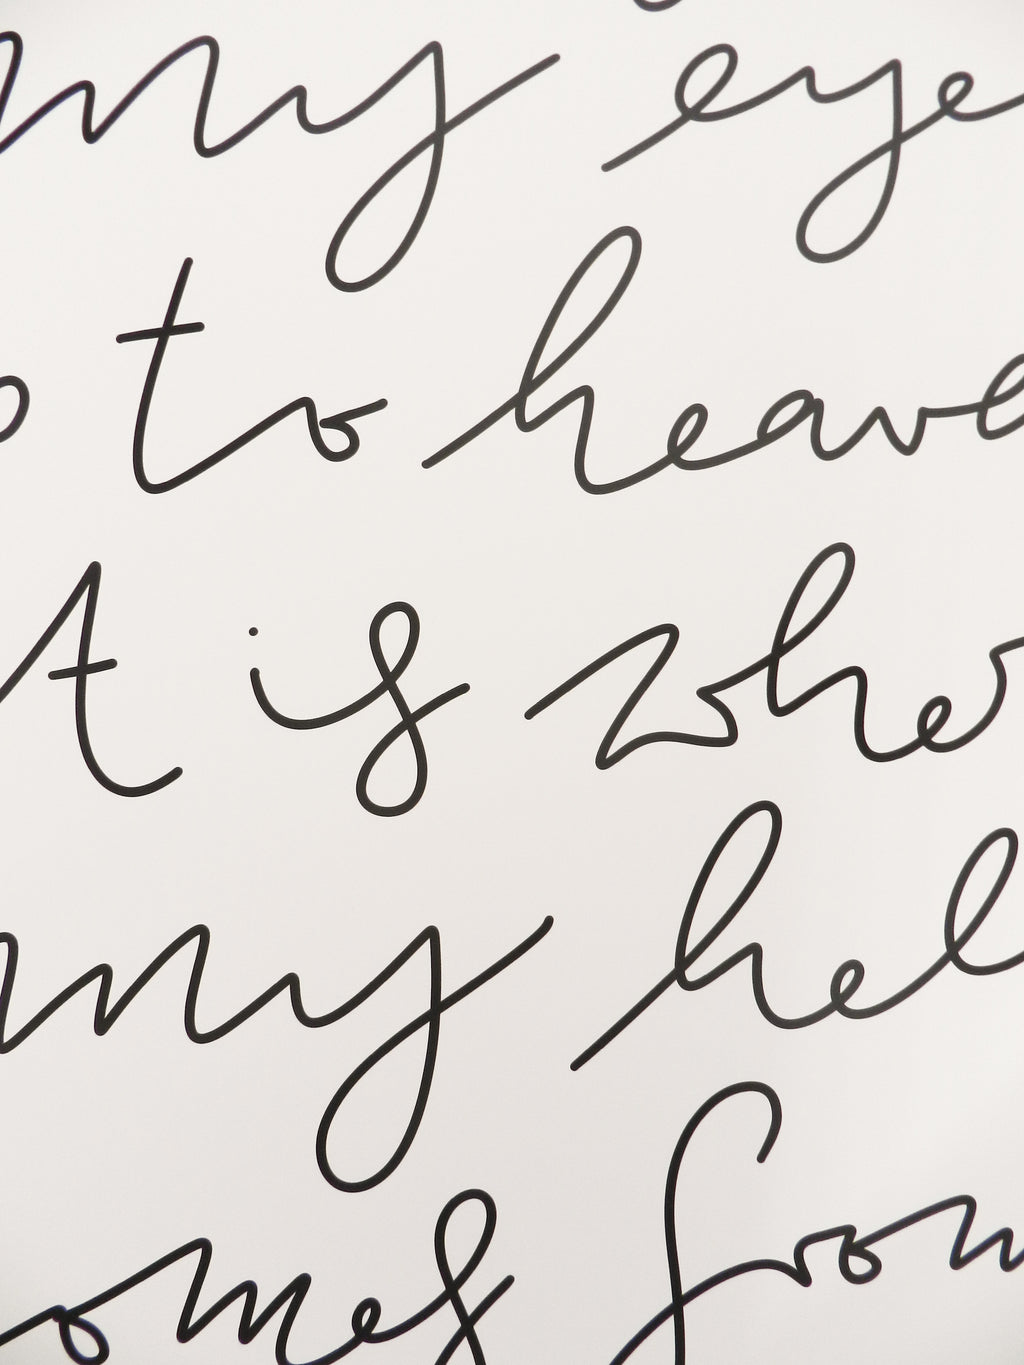 my eye
to heave
t is whe
my hel
omes from